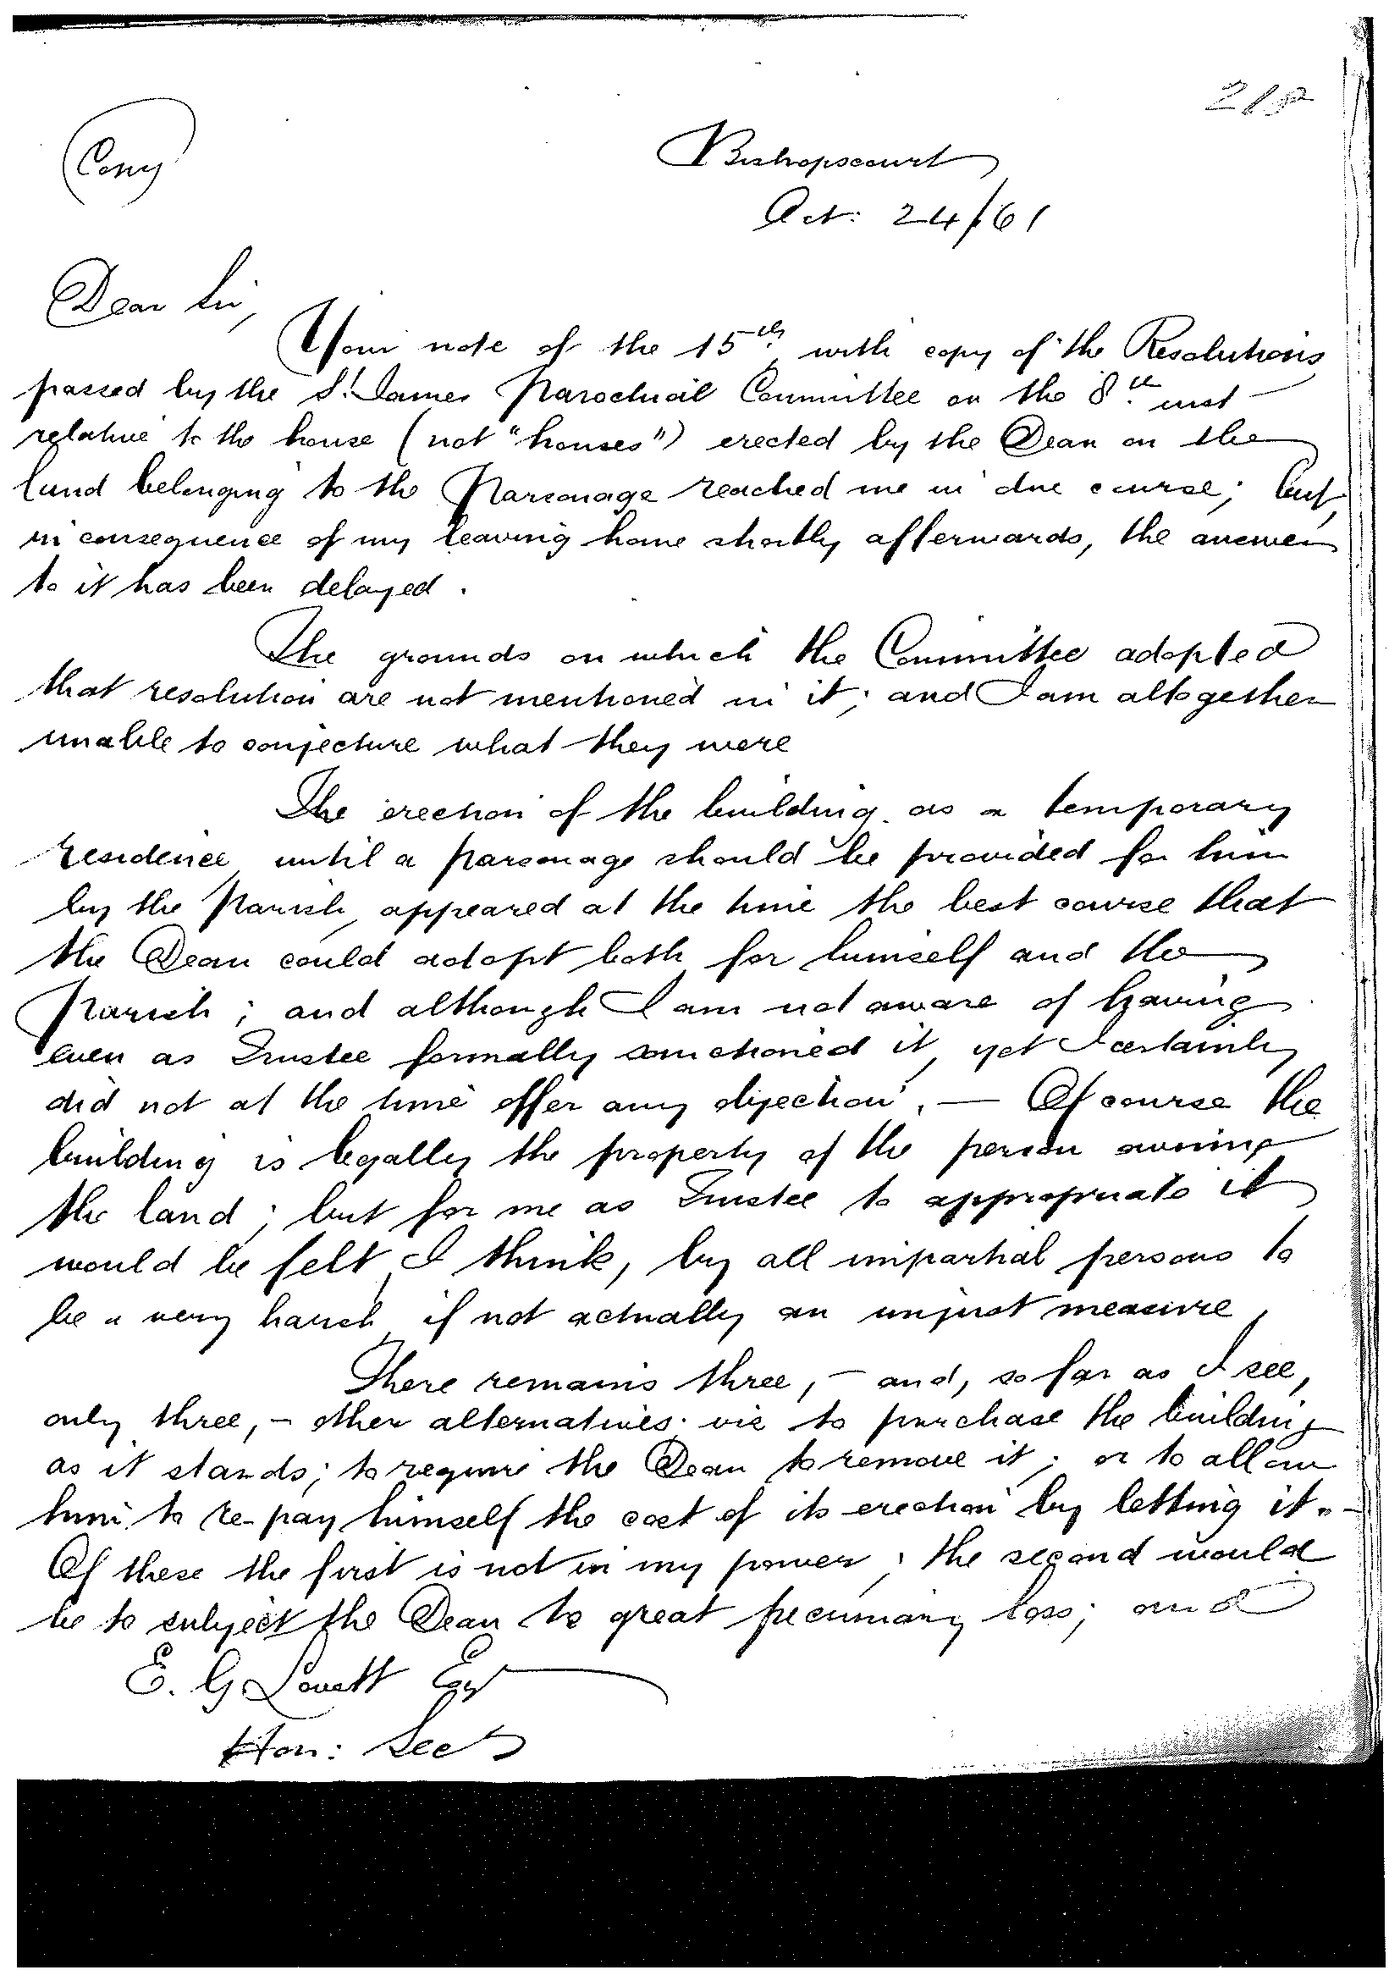 218
(Copy)
Bishopscourt
Oct: 24/61
Dear Sir,
Your note of the 15th, with copy of the Resolutions
passed by the St. James Parochial Committee on the 8th inst
relative to the house (not "houses") erected by the Dean on the
land belonging to the Parsonage reached me in due course; but,
in consequence of my leaving home shortly afterwards, the answer
to it has been delayed.
The grounds on which the Committee adopted
that resolution are not mentioned in it; and I am altogether
unable to conjecture what they were
The erection of the building as a temporary
residence, until a parsonage should be provided for him
by the Parish, appeared at the time the best course that
the Dean could adopt both for himself and the
Parish; and although I am not aware of having
even as Trustee formally sanctioned it, yet I certainly
did not at the time offer any objection. — Of course the
building is legally the property of the person owning
the land; but for me as Trustee to appropriate it
would be felt, I think, by all impartial persons to
be a very harsh, if not actually an unjust measure.
There remains three, — and, so far as I see,
only three, — other alternatives: viz to purchase the building
as it stands; to require the Dean to remove it; or to allow
him to re-pay himself the cost of its erection by letting it. —
Of these the first is not in my power; the second would
be to subject the Dean to great pecuniary loss; and
E. G Lovett Esq
Hon: Secy